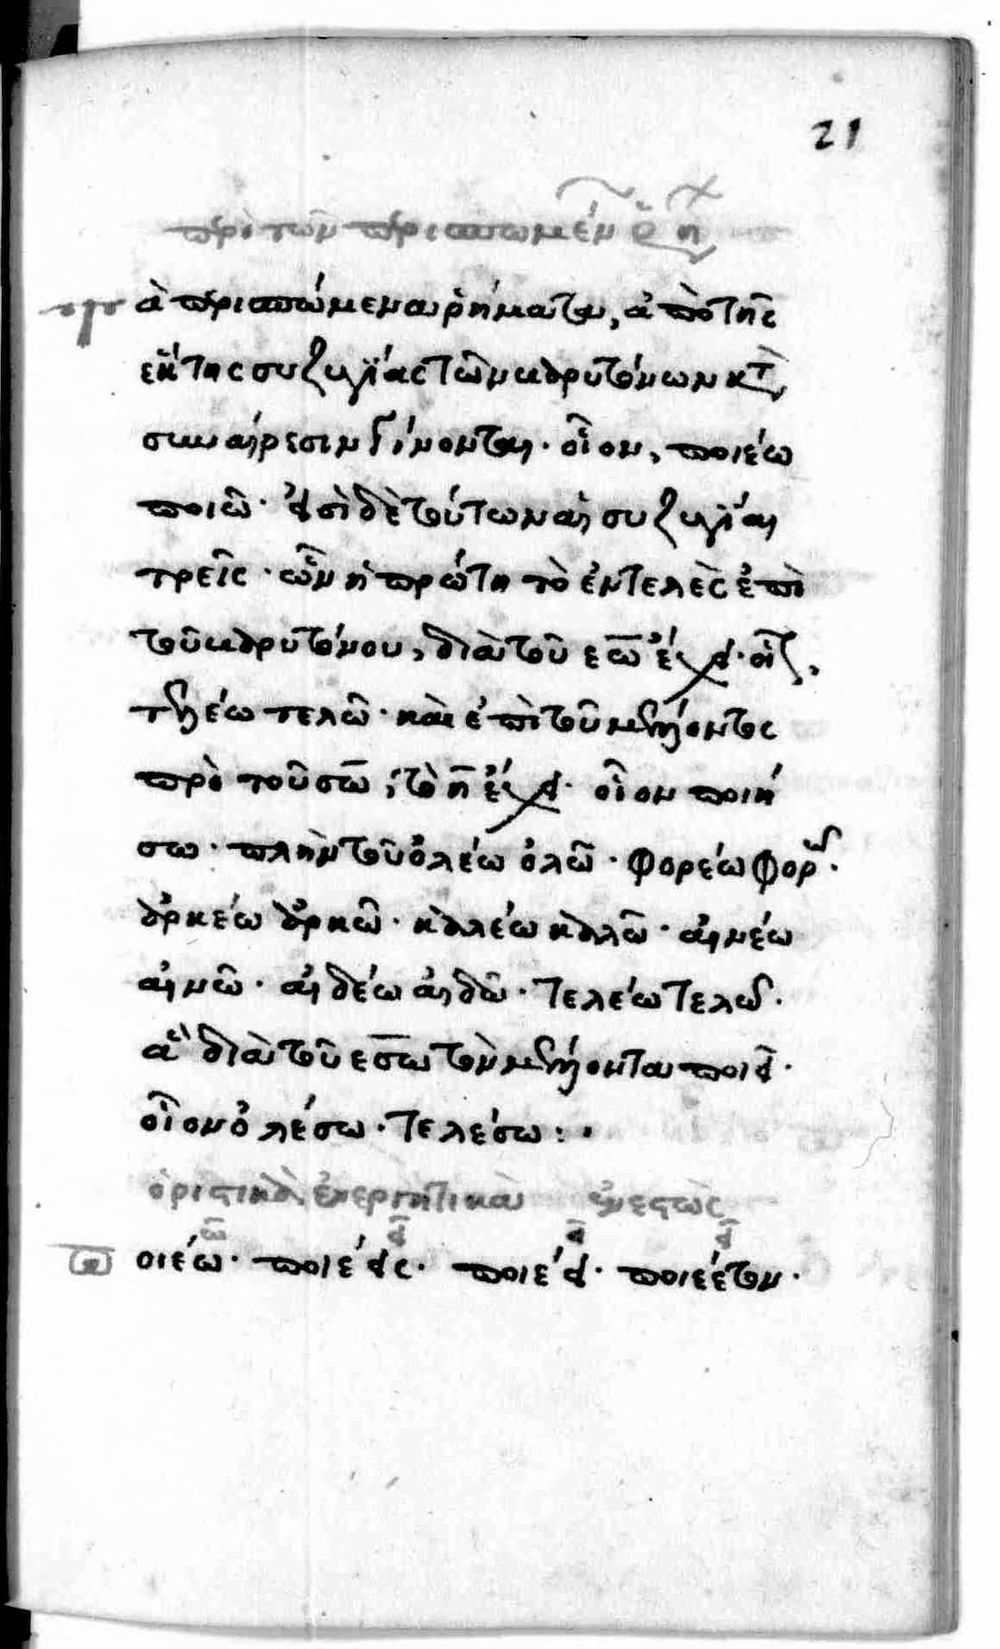 21
περὶ τῶν περισπωμένων
τὰ περισπώμενα ῥήματα, ἀπὸ τῆς
ἕκτης συζυγίας τῶν βαρυτόνων κατὰ
συναίρεσιν γίνονται· οἷον, ποιέω
ποιῶ· εἰσὶ δὲ τούτων αἱ συζυγίαι
τρεῖς· ὧν ἡ πρώτη τὸ ἐντελὲς ἐπὶ
τοῦ βαρυτόνου, διὰ τοῦ εω ἔχει· οἷον,
τελέω τελῶ· καὶ ἐπὶ τοῦ μέλλοντος
πρὸ τοῦ σω, τὸ η ἔχει· οἷον ποιή
σω· πλὴν τοῦ ὀλέω ὀλῶ· φορέω φορῶ·
ἀρκέω ἀρκῶ· καλέω καλῶ· αἰνέω
αἰνῶ· αἰδέω αἰδῶ· τελέω τελῶ·
ἃ διὰ τοῦ εσω τὸν μέλλοντα ποιεῖ·
οἷον ὀλέσω· τελέσω:·
ὁριστικὰ ἐνεργητικὰ ἐνεστὼς
ῶ εῖ εῖ εῖ
ποιέω· ποιέεις· ποιέει· ποιέετον·